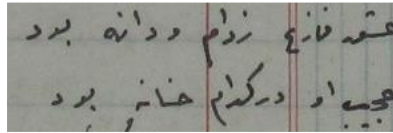 عشق فارغ ز دام و دانه بود
عجب او در کدام خانه بود